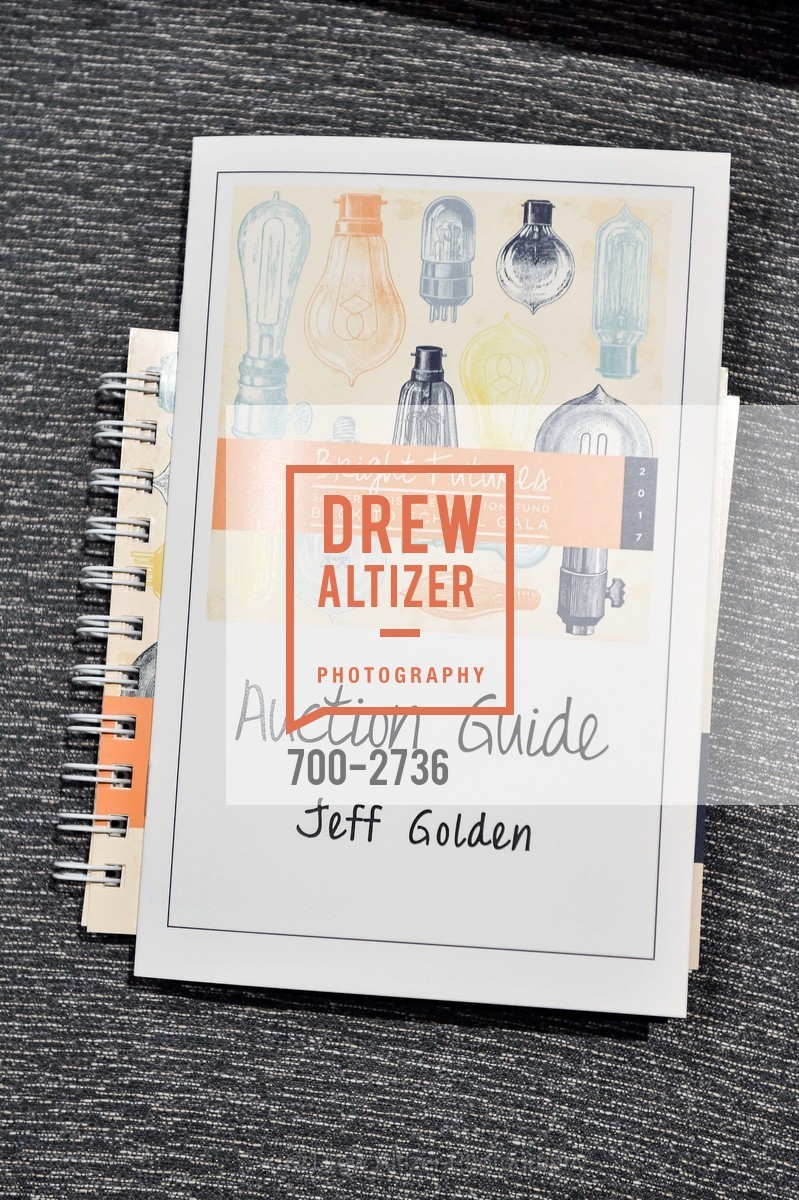 Bright Futures
GALA
2017
DREW
ALTIZER
PHOTOGRAPHY
Auction Guide
700-2736
Jeff Golden